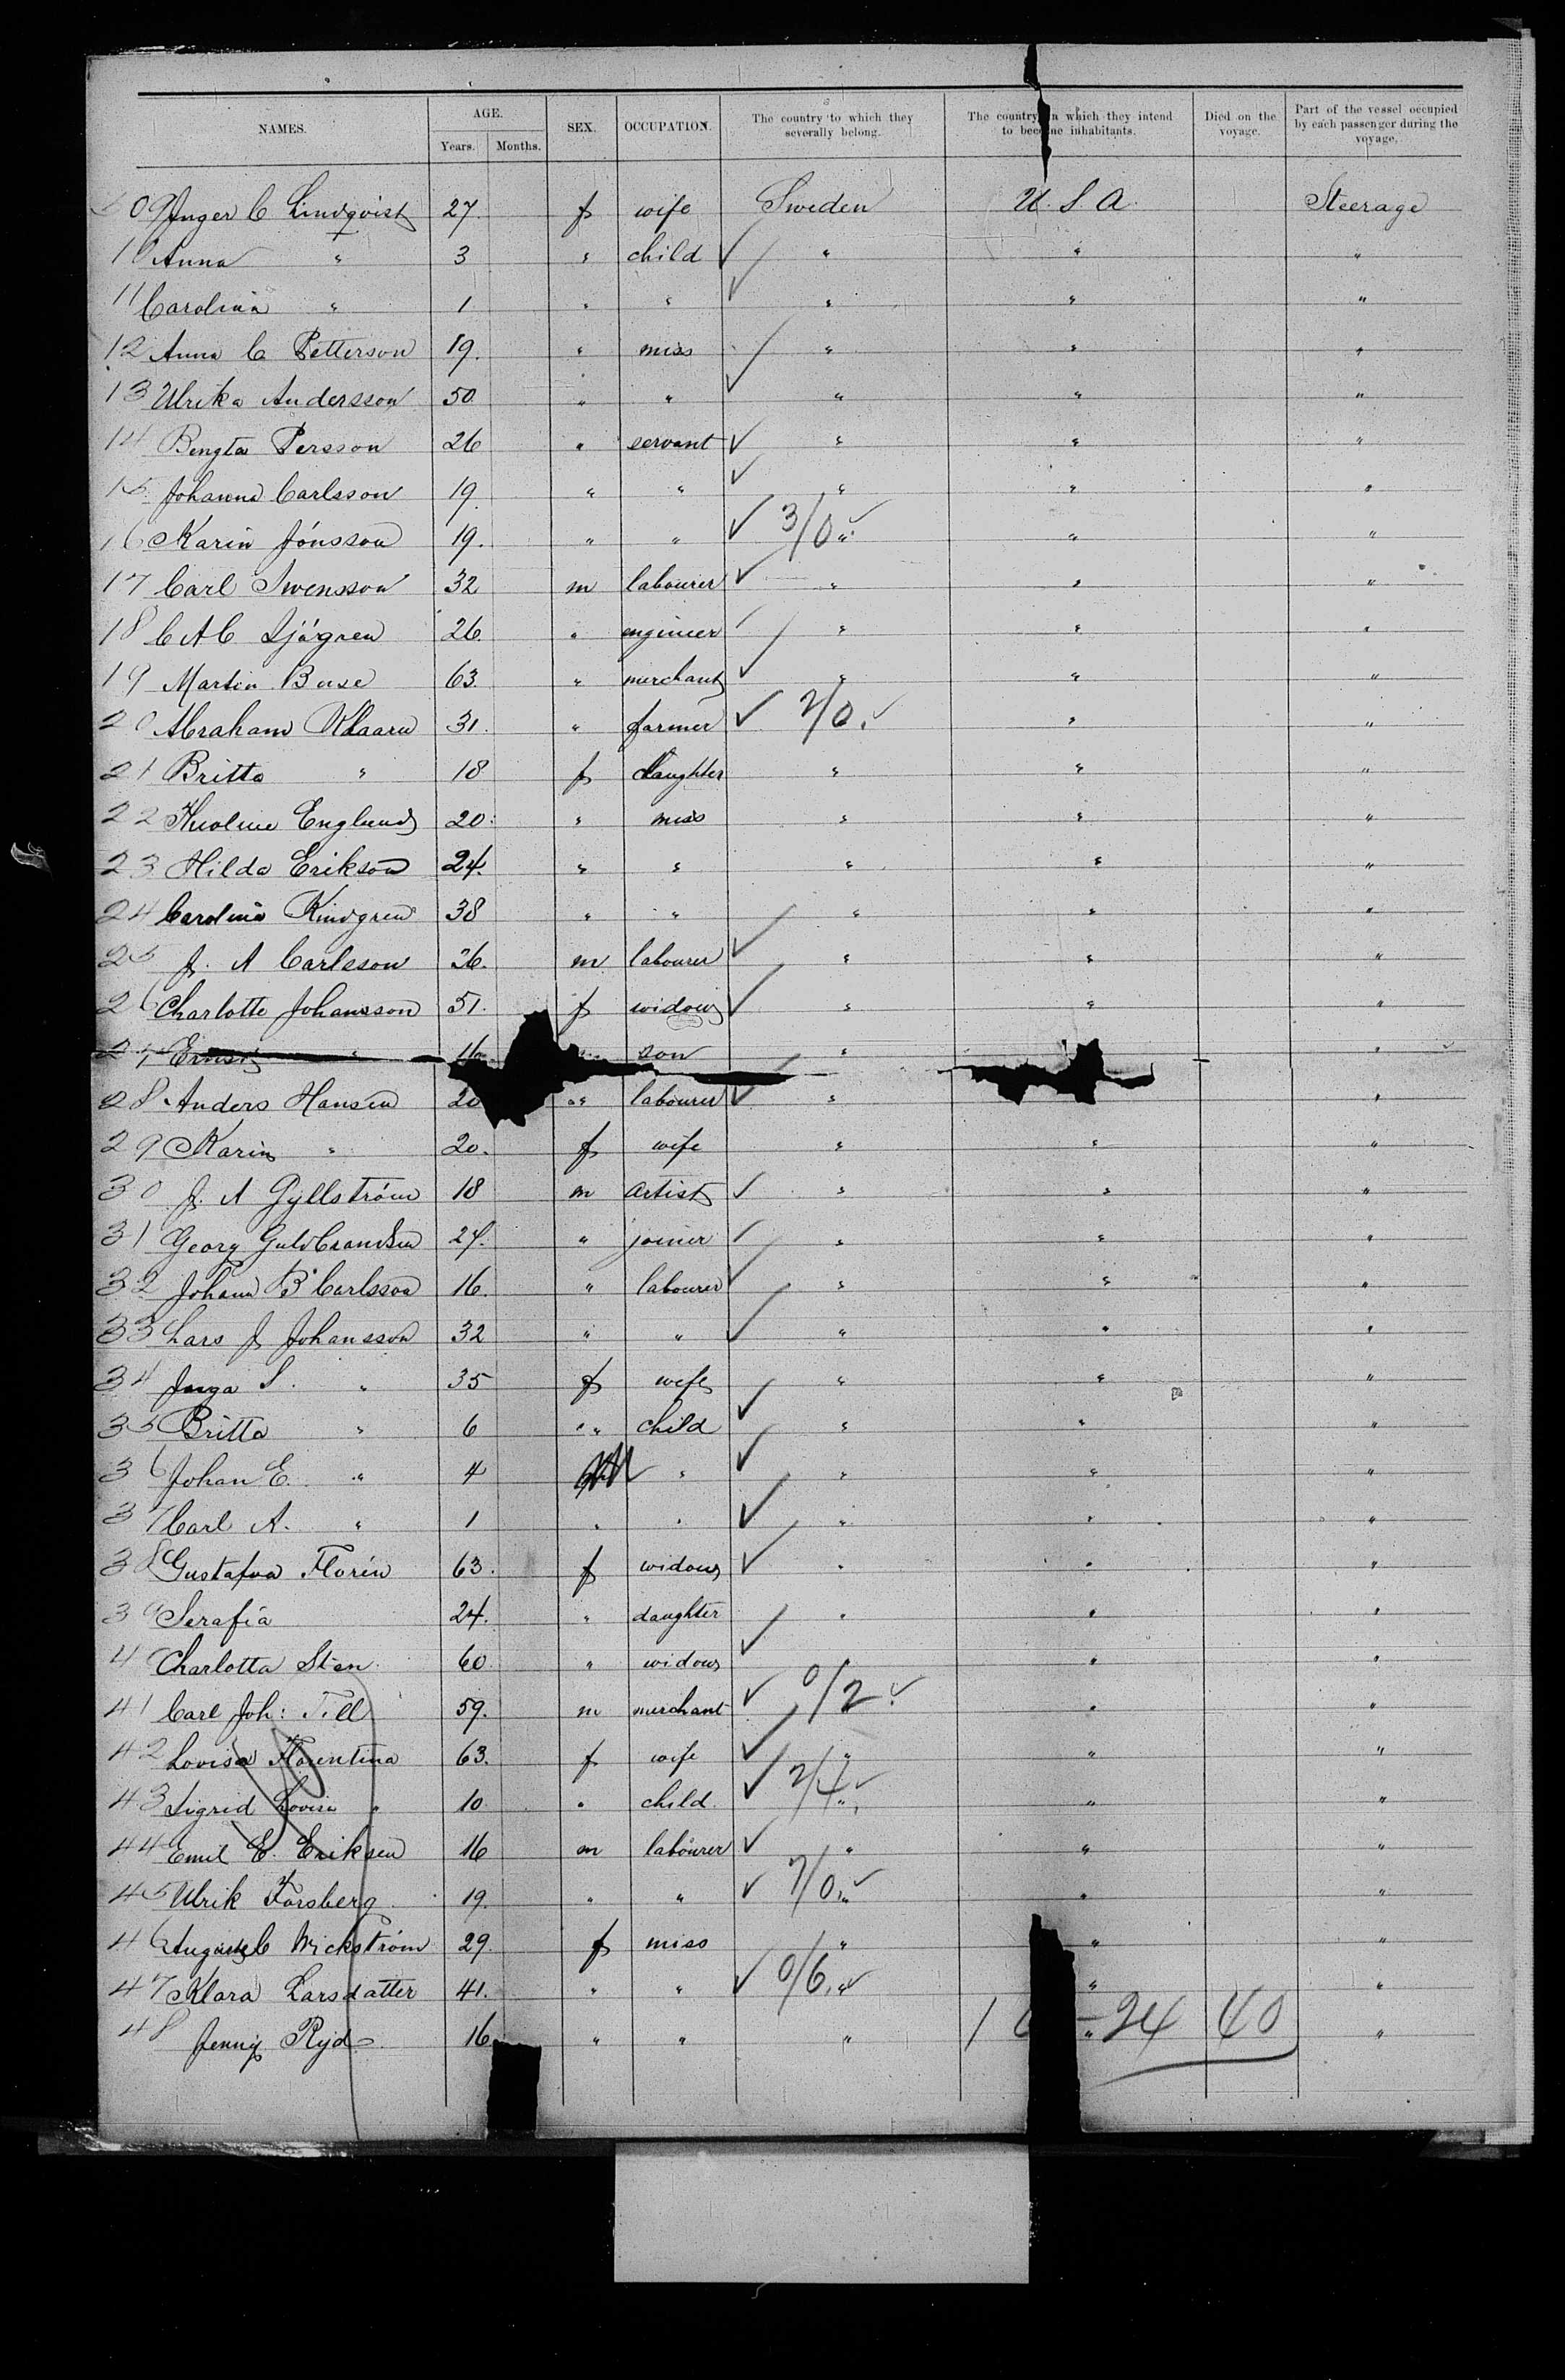 NAMES. AGE. SEX. OCCUPATION. The country to which they severally belong. The country in which they intend to become inhabitants. Died on the voyage. Part of the vessel occupied by each passenger during the voyage.
Years. Months.
09 Inger C Lindqvist 27. f wife Sweden U. S. A. Steerage
10 Anna " 3 " child " " "
11 Carolina " 1 " " " " "
12 Anna C Petterson 19. " miss " " "
13 Ulrika Andersson 50 " " " " "
14 Bengta Persson 26 " servant " " "
15 Johanna Carlsson 19. " " " " "
16 Karin Jónsson 19. " " 3/0 " " "
17 Carl Swensson 32 m labourer " " "
18 C A C Sjógren 26. " engineer " " "
19 Martin 63. " merchant " " "
20 Abraham 31. " farmer 2/0 " "
21 Britta " 18 f daughter " " "
22 Englund 20. " miss " " "
23 Hilda Erikson 24. " " " " "
24 Carolina 38 " " " " "
25 J. A Carlsson 26. m labourer " " "
26 Charlotte Johansson 51. f widow " " "
27 Ernst " 16 son " "
28 Anders Hansen 20 " labourer " "
29 Karin " 20. f wife " " "
30 J. A Gyllström 18 m artist " " "
31 Georg Guldbrandsen 24. " joiner " " "
32 Johan B Carlsson 16. " labourer " " "
33 Lars J Johansson 32 " " " " "
34 Inga S. " 35 f wife " " "
35 Britta " 6 " child " " "
36 Johan E. " 4 M " " " "
37 Carl A. " 1 " " " " "
38 Gustafva Florén 63. f widow " " "
39 Serafia 24. " daughter " " "
40 Charlotta Sten 60 " widow " " "
41 Carl Joh: Till 59. m merchant 0/2 " "
42 Lovisa Florentina 63. f wife " " "
43 Sigrid Lovisa " 10 " child 2/4 " " "
44 Emil E. Eriksen 16 m labourer " " "
45 Ulrik Forsberg 19. " " 7/0 " " "
46 C Wickström 29. f miss " " "
47 Klara Larsdatter 41. " " 0/6 " " "
48 Jenny Ryd 16. " " " " "
24 40